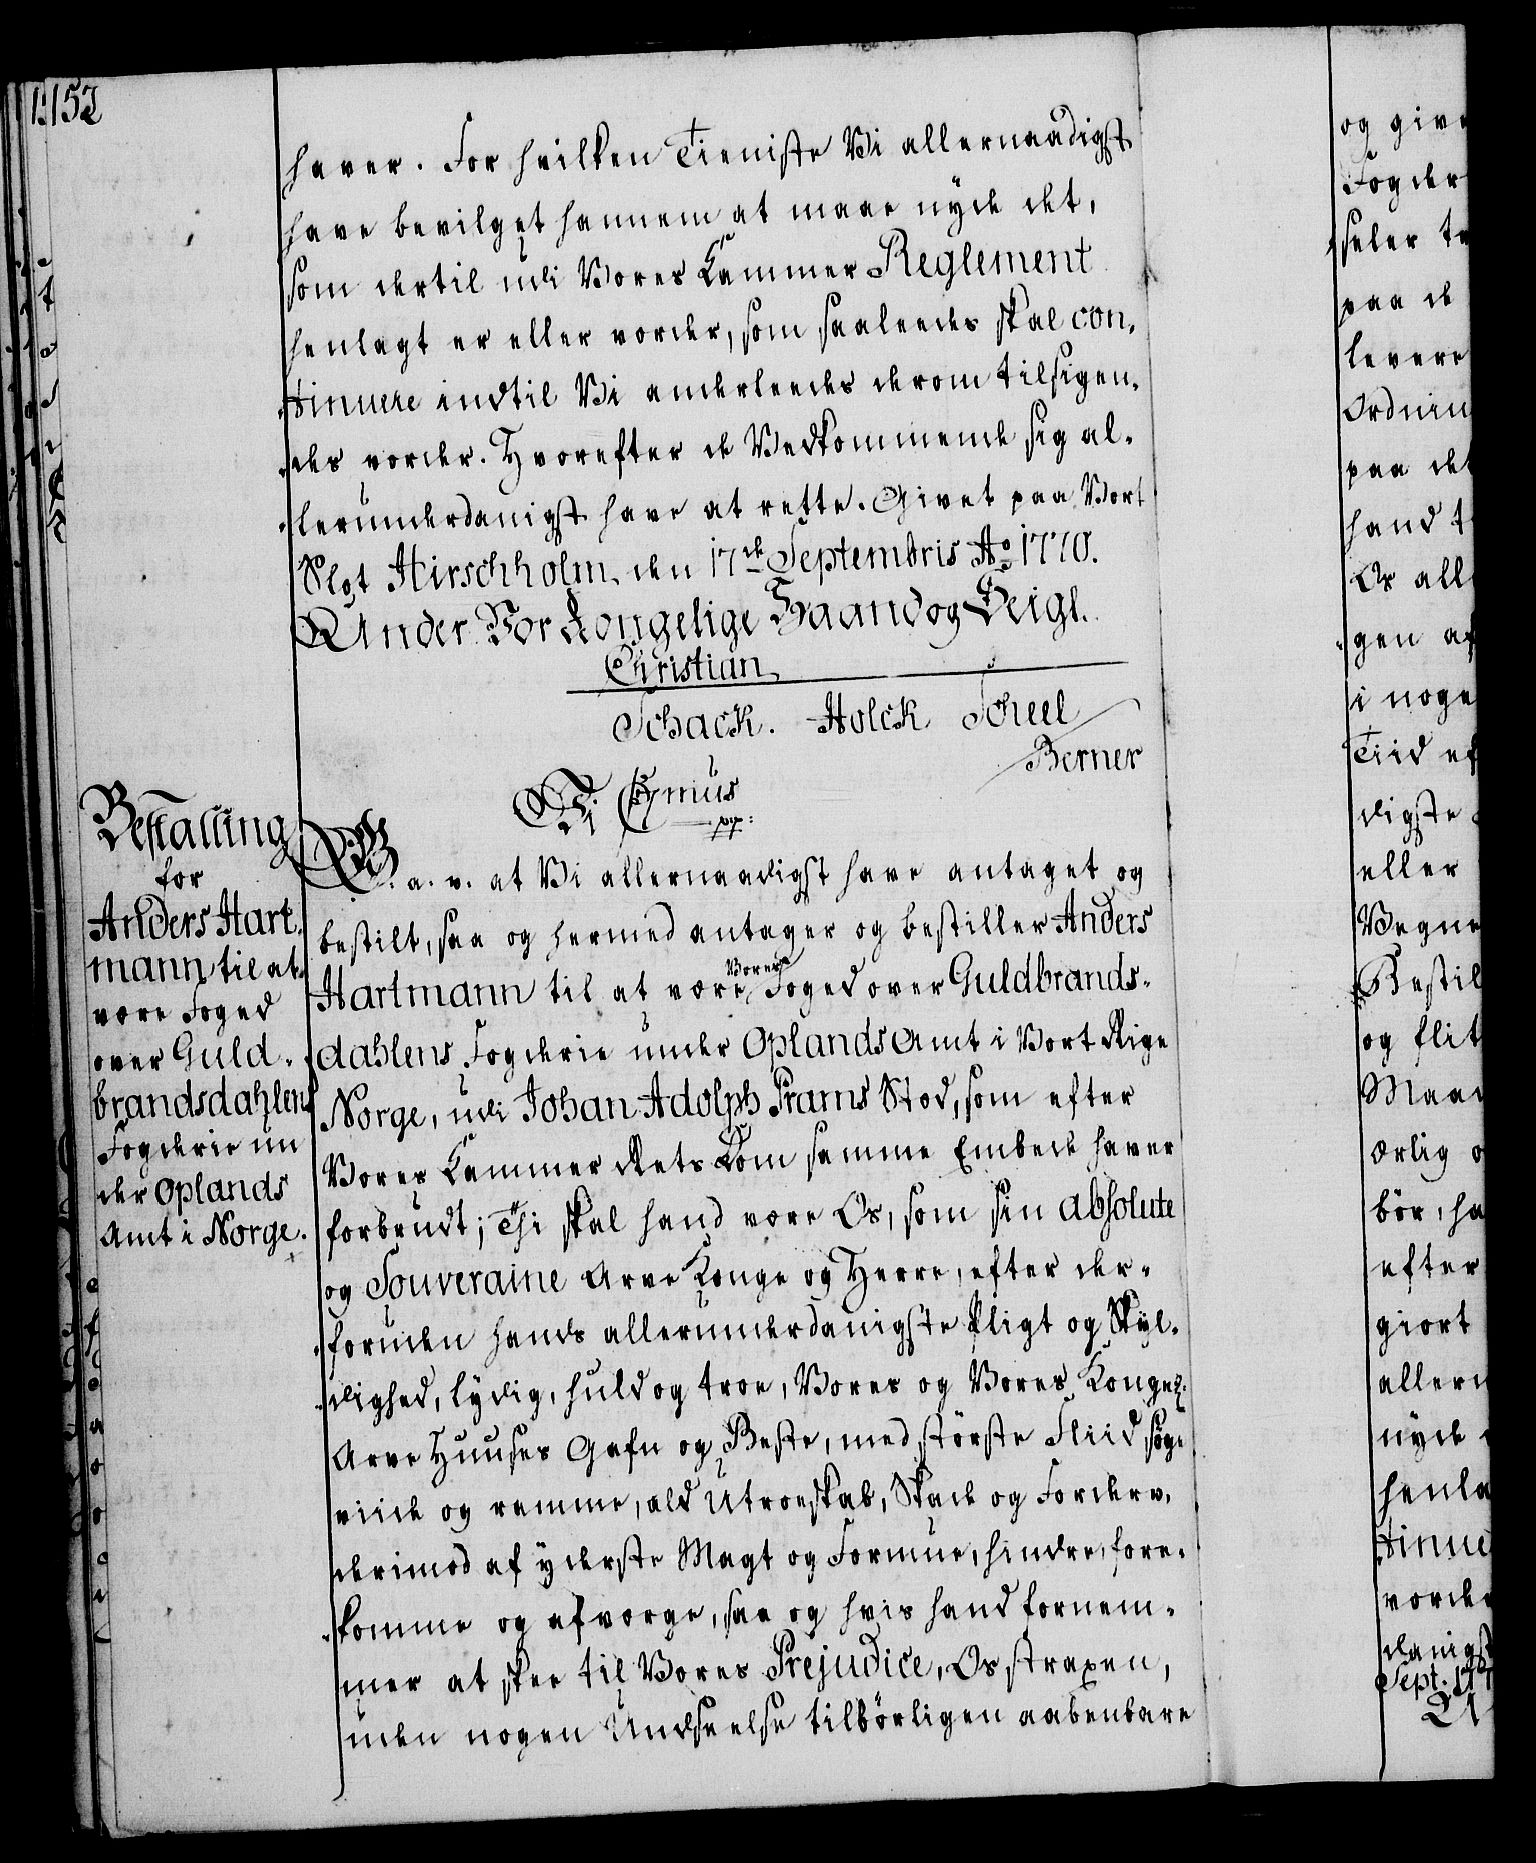 1152
haver. For hvilken Tieniste Vi allernaadigst
have bevilget hannem at maae nyde det,
som dertil udi Vores Kammer Reglement
henlagt er eller vorder, som saaleedes skal con-
tinuere indtil Vi anderleedes derom tilsigen-
des vorder. Hvorefter de Vedkommende sig al-
lerunderdanigst have at rette. Givet paa Vort
Slot Hirschholm, den 17de Septembris Ao 1770.
Under Vor Kongelige Haand og Seigl.
Christian
Schack. Holck Scheel
Berner
Vi C 7mus
pp:
Bestalling
for
Anders Hart-
mann til at
være Foged
over Guld-
brandsdahlens
Fogderie un
der Oplands
Amt i Norge.
G. a. v. at Vi allernaadigst have antaget og
bestilt, saa og hermed antager og bestiller Anders
Hartmann til at være Vores Foged over Guldbrands-
dahlens Fogderie under Oplands Amt i Vort Rige
Norge, udi Johan Adolph Prams Sted, som efter
Vores Kammer Rets Dom samme Embede haver
forbrudt; Thi skal hand være Os, som sin absolute
og Souveraine Arve Konge og Herre, efter der-
foruden hands allerunderdanigste Pligt og Skyl-
dighed, lydig, huld og troe, Vores og Vores Kongel:
Arve Huuses Gafn og Beste, med største Fliid søge
viide og ramme, ald Utroeskab, Skade og Forderv,
derimod af yderste Magt og Formue, hindre, fore-
komme og afværge, saa og hvis hand fornem-
mer at skee til Vores Prejudice, Os straxen,
uden nogen Undseelse tilbørligen aabenbare
og give
Fogder
seler tr
paa de
levere
Ordnin
paa det
hand t
Os all
gen af
i noge
Tiid ef
digste
eller
Vegne
Bestil
og flit
Maan
ærlig o
bör, ha
efter
giort
allern
nyde
henla
tinue
vorde
danigst
Sept. 177
U